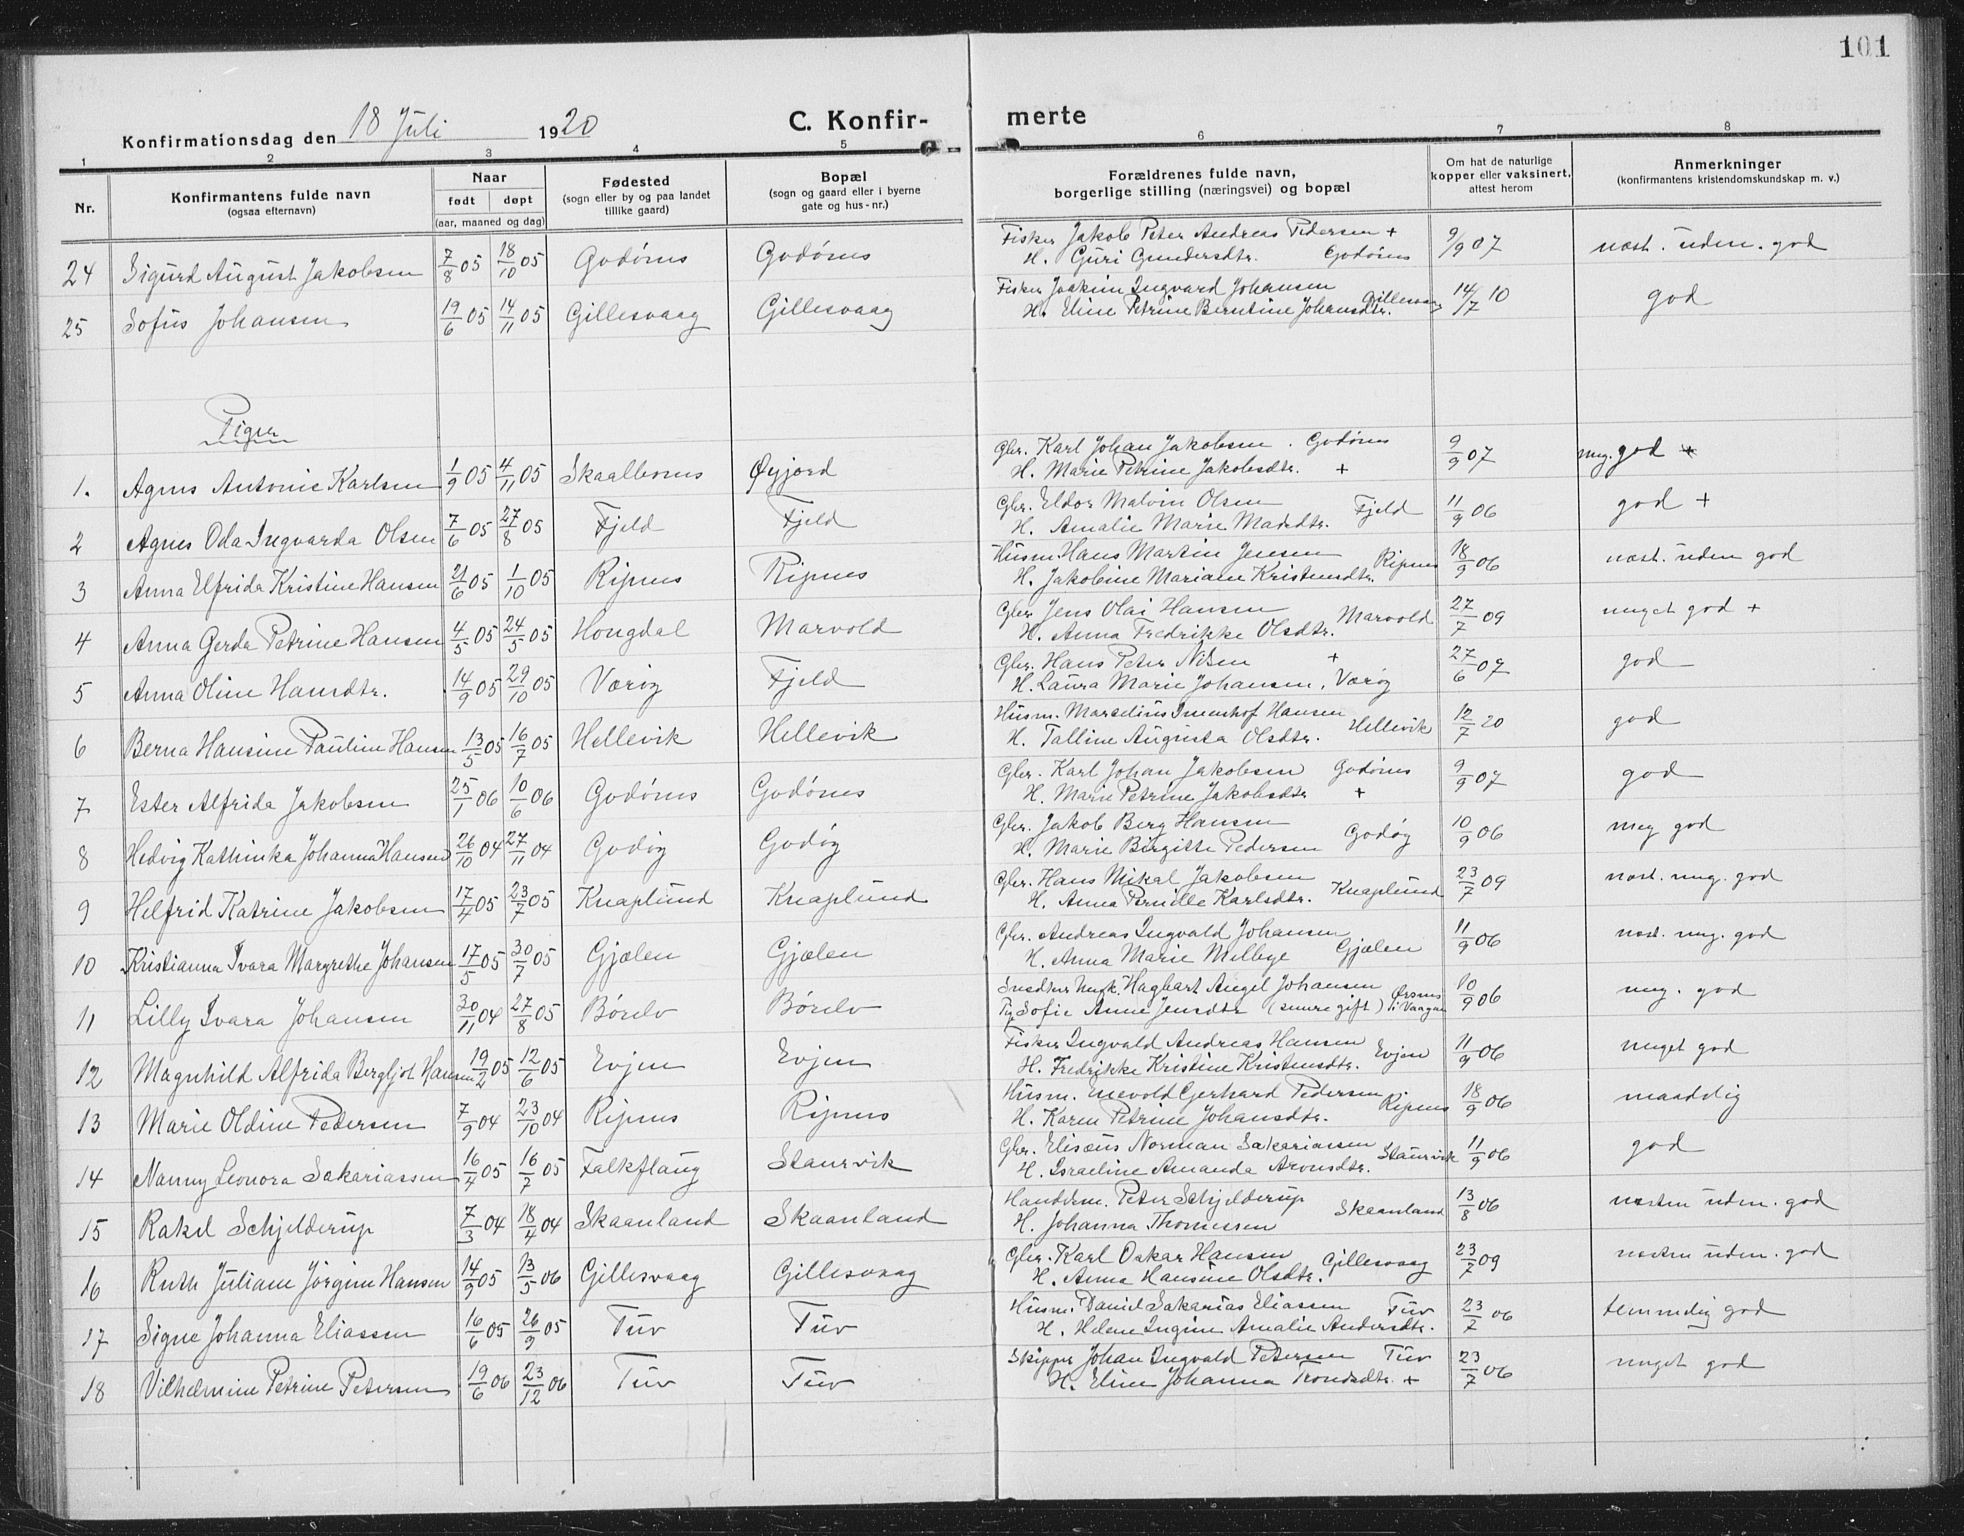 101
Konfirmationsdag den 18 Juli 1920 C. Konfirmerte
1 2 3 4 5 6 7 8
Nr. Konfirmantens fulde navn (ogsaa efternavn) Naar født døpt (aar, maaned og dag) Fødested (sogn eller by og paa landet tillike gaard) Bopæl (sogn og gaard eller i byerne gate og hus-nr.) Forældrenes fulde navn, borgerlige stilling (næringsvei) og bopæl Om hat de naturlige kopper eller vaksinert, attest herom Anmerkninger (konfirmantens kristendomskundskap m. v.)
24 Sigurd August Jakobsen 7/8 05 18/10 05 Godønes Godønes Fisker Jakob Peter Andreas Pedersen + 9/9 07 næst. uden. god
H. Guri Gundersdtr. Godønes
25 Sofus Johansen 19/6 05 14/11 05 Gillesvaag Gillesvaag Fisker Joakim Ingvard Johansen 14/7 10 god
H. Eline Petrine Berntine Johansdtr. Gillesvaag
Piger
1. Agnes Antonie Karlsen 1/9 05 4/11 05 Skaalbones Øyjord Gbr. Karl Johan Jakobsen. Godønes 9/9 07 meg. god +
H. Marie Petrine Jakobsdtr. +
2 Agnes Oda Ingvarda Olsen 7/6 05 27/8 05 Fjeld Fjeld Gbr. Eldor Malvin Olsen Fjeld 11/9 06 god +
H. Amalie Marie Madsdtr.
3 Anna Elfrida Kristine Hansen 21/6 05 1/10 05 Ripnes Ripnes Husm. Hans Martin Jensen Ripnes 18/9 06 næst. uden god
H. Jakobine Mariane Kristensdtr.
4 Anna Gerda Petrine Hansen 4/5 05 24/5 05 Hongdal Marvold Gbr. Jens Olai Hansen Marvold 27/7 09 meget god +
H. Anna Fredrikke Olsdtr.
5 Anna Oline Hansdtr. 14/9 05 29/10 05 Værøy Fjeld Gbr. Hans Peter Nilsen + 27/6 07 god
H. Laura Marie Johansen. Værøy
6 Berna Hansine Pauline Hansen 13/5 05 16/7 05 Hellevik Hellevik Husm. Marselius Imenhof Hansen Hellevik 12/7 20 god
H. Talline Augusta Olsdtr.
7 Ester Alfrida Jakobsen 25/1 06 10/6 06 Godønes Godønes Gbr. Karl Johan Jakobsen Godønes 9/9 07 god
H. Marie Petrine Jakobsdtr +
8 Hedvig Kathinka Johanna Hansen 26/10 04 27/11 04 Godøy Godøy Gbr. Jakob Berg Hansen Godøy 10/9 06 meg god
H. Marie Birgitte Pedersen
9 Helfrid Katrine Jakobsen 17/4 05 23/7 05 Knaplund Knaplund Gbr. Hans Mikal Jakobsen Knaplund 23/7 09 næst. meg. god
H. Anna Pernille Karlsdtr.
10 Kristianna Ivara Margrethe Johansen 17/5 05 30/7 05 Gjælen Gjælen Gbr. Andreas Ingvald Johansen 11/9 06 næst. meg. god
H. Anna Marie Mellbye Gjælen
11 Lilly Ivara Johansen 30/11 04 27/8 05 Børelv Børelv Snedker Ungk. Hagbart Angel Johansen Ørsnes 10/9 06 meg. god
Pig. Sofie Anne Jensdtr (senere gift) i Vaagan
12 Magnhild Alfrida Bergljot Hansen 19/2 05 12/6 05 Evjen Evjen Fisker Ingvald Andreas Hansen Evjen 11/9 06 meget god
H. Fredrikke Kristine Kristensdtr.
13 Marie Oldine Pedersen 7/9 04 23/10 04 Ripnes Ripnes Husm. Enevold Gerhard Pedersen Ripnes 18/9 06 maadelig
H. Karen Petrine Johansdtr.
14 Nanny Leonora Sakariassen 16/4 05 16/7 05 Falkflaug Staurvik Gbr. Elisæus Norman Sakariassen Staurvik 11/9 06 god
H. Israeline Amanda Arensdtr.
15 Rakel Schjelderup 7/3 04 18/4 04 Skaanland Skaanland Handelsm. Peter Schjelderup Skaanland 13/8 06 næsten uden. god
H. Johanna Thomessen
16 Ruth Juliane Jørgine Hansen 14/9 05 13/5 06 Gillesvaag Gillesvaag Gbr. Karl Oskar Hansen Gillesvaag 23/7 09 næsten uden. god
H. Anna Hansine Olsdtr.
17 Signe Johanna Eliassen 16/6 05 26/9 05 Tuv Tuv Husm. Daniel Sakarias Eliassen Tuv 23/7 06 temmelig god
H. Helene Ingine Amalie Andersdtr.
18 Vilhelmine Petrine Petersen 19/6 06 23/12 06 Tuv Tuv Skipper Johan Ingvald Petersen Tuv 23/7 06 meget god
H. Eline Johanna Trondsdtr. +